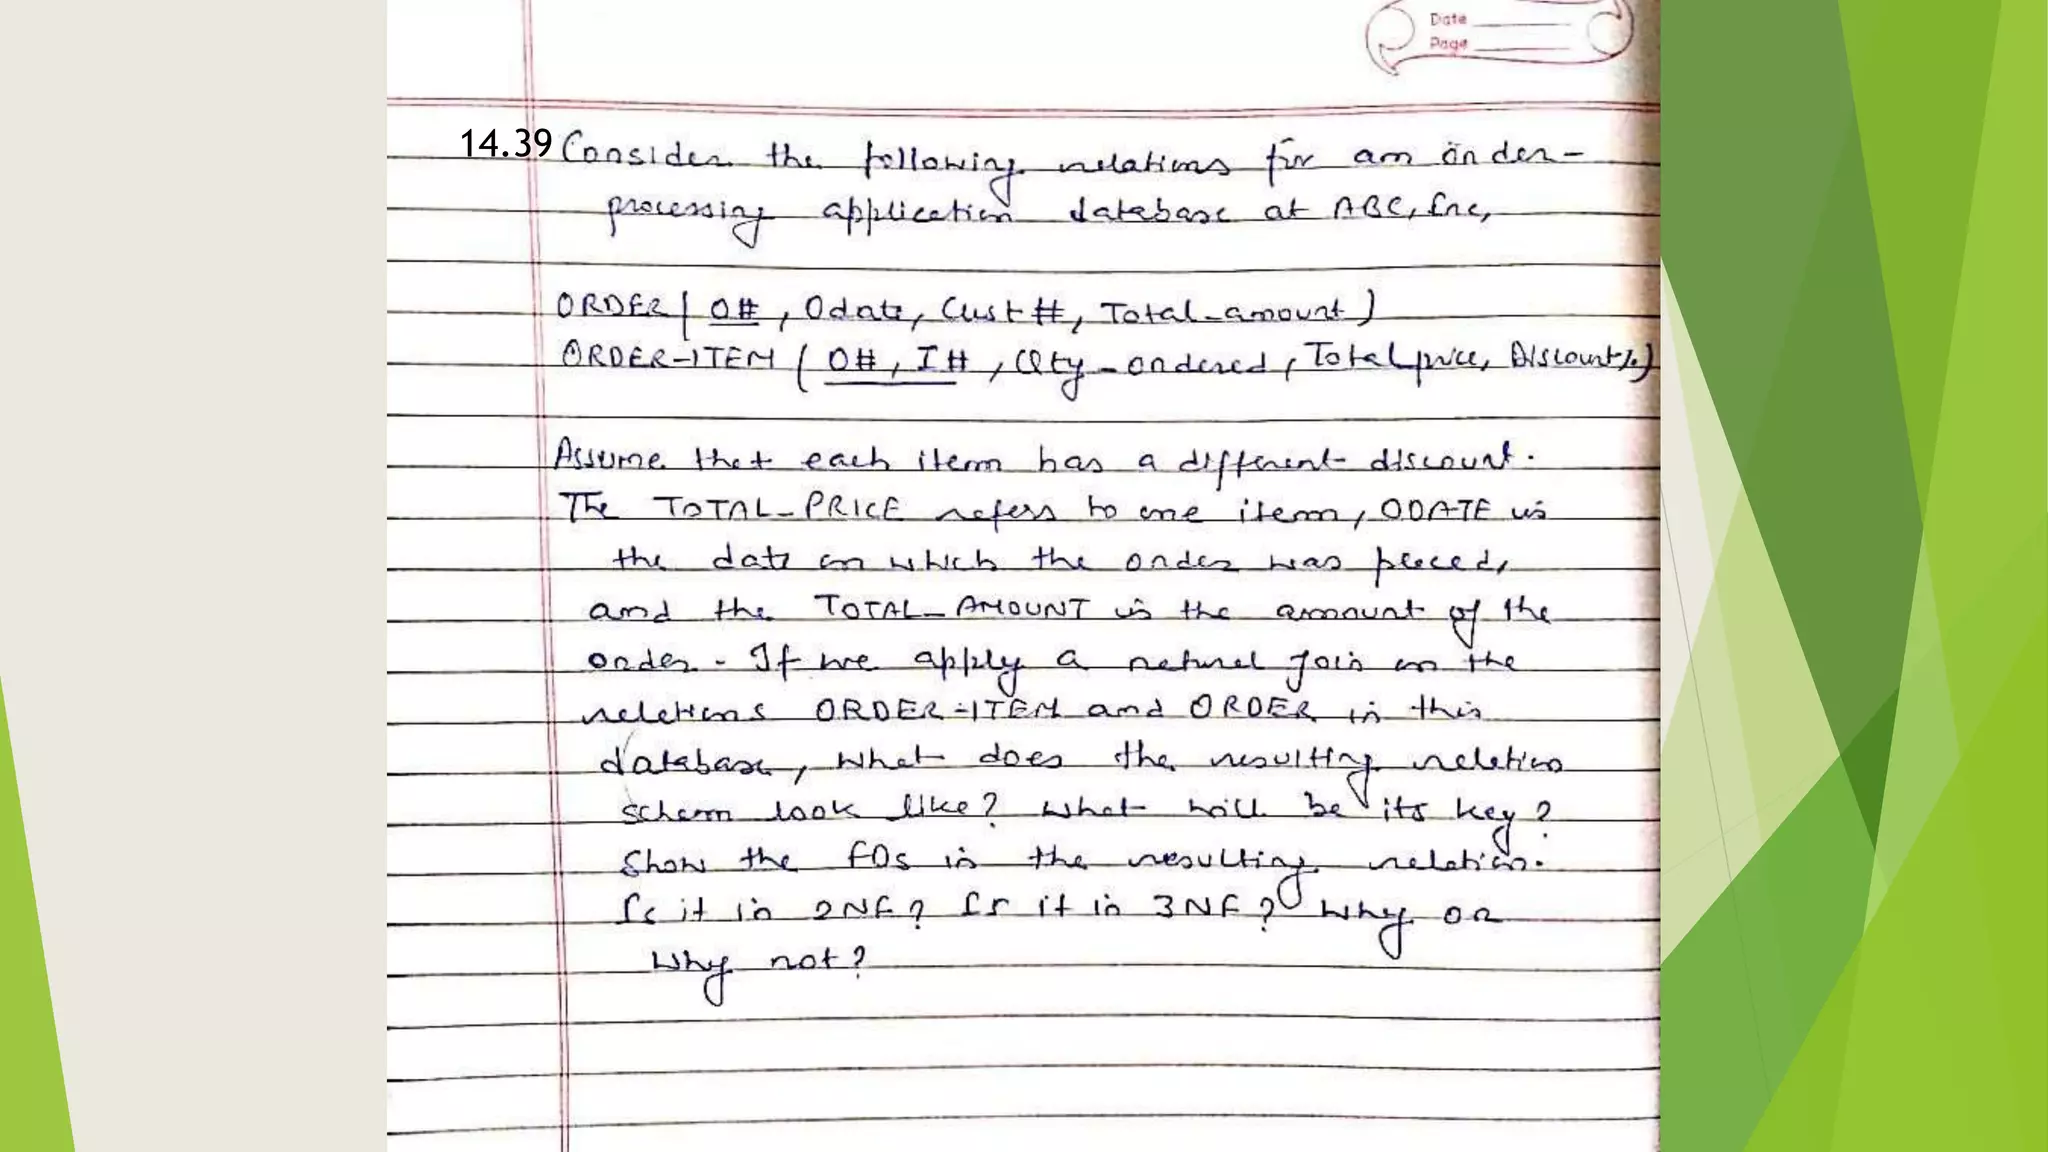 Date
Page
14.39 Consider the following relations for an order-
processing application database at ABC, Inc,
ORDER( O#, Odate, Cust#, Total-amount)
ORDER-ITEM ( O#, I#, Qty-ordered, Total price, Discount%)
Assume that each item has a different discount.
The TOTAL-PRICE refers to one item, ODATE is
the date on which the order was placed,
and the TOTAL-AMOUNT is the amount of the
order. If we apply a natural join on the
relations ORDER-ITEM and ORDER in this
database, what does the resulting relation
schem look like? what will be its key?
Show the FDs in the resulting relation.
Is it in 2NF? Is it in 3NF? Why or
Why not?